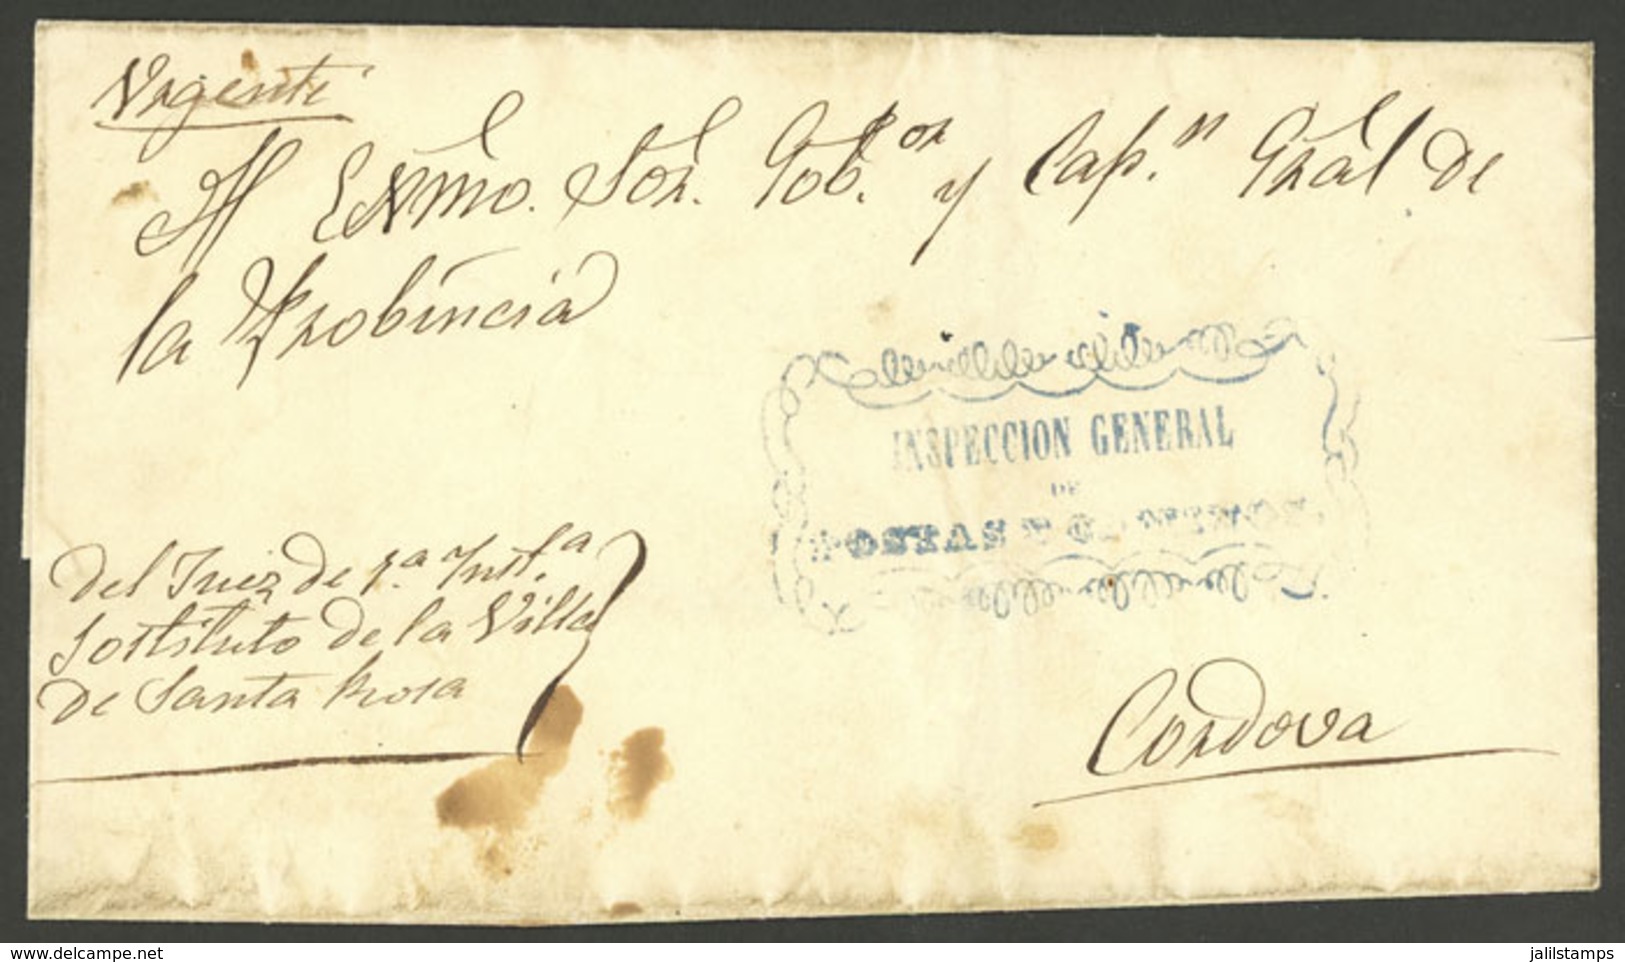 Vrgente
Al Exmo. Sor. Gob.or y Cap.n Gral de
la Probincia
INSPECCION GENERAL
DE
POSTAS Y
Del Juez de 1.a Inst.a
Sostituto de la Villa
de Santa Rosa
Cordova
delcampe.net
jalilstamps